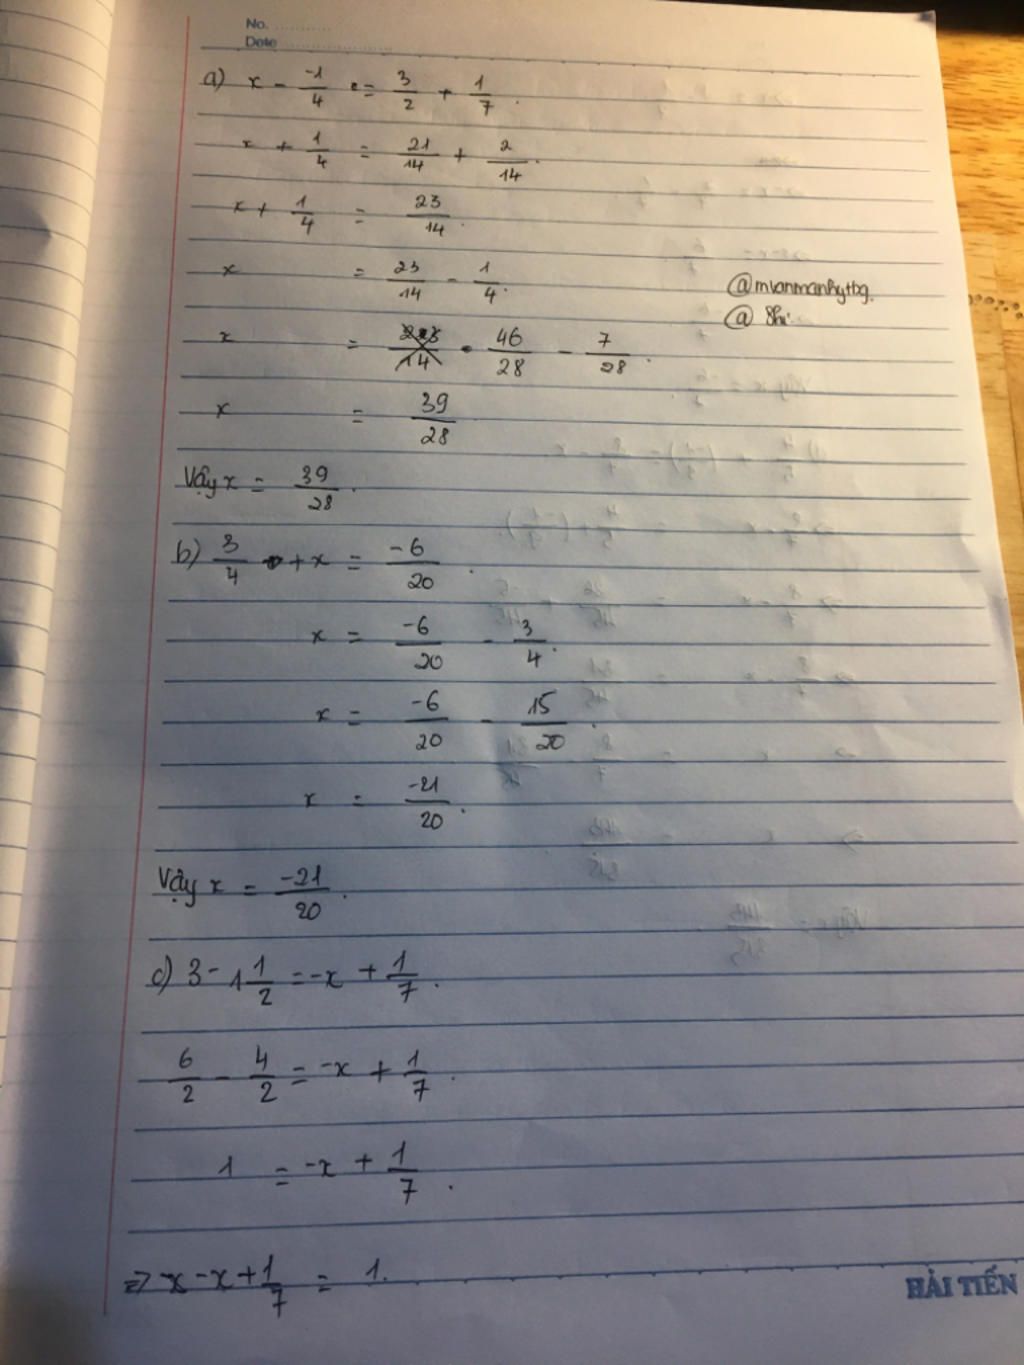 No. ............
Date ........................
a) x - -1/4 = 3/2 + 1/7.
x + 1/4 = 21/14 + 2/14.
x + 1/4 = 23/14.
x = 23/14 - 1/4.
@mianmanhytbg.
@ Shi.
x = 46/28 - 7/28.
x = 39/28
Vậy x = 39/28.
b) 3/4 + x = -6/20.
x = -6/20 - 3/4.
x = -6/20 - 15/20.
x = -21/20.
Vậy x = -21/20.
c) 3 - 1 1/2 = -x + 1/7.
6/2 - 4/2 = -x + 1/7.
1 = -x + 1/7.
=> -x - x + 1/7 = 1.
HẢI TIẾN